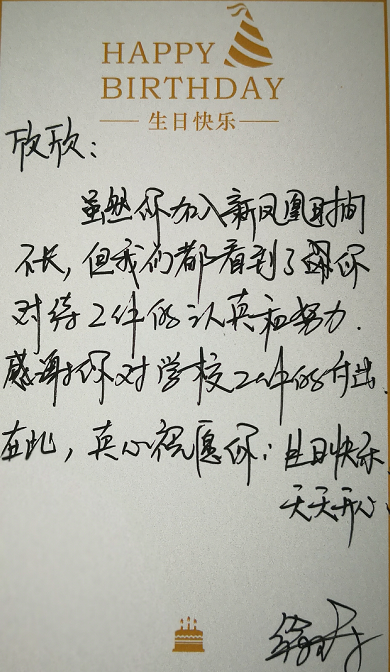 HAPPY
BIRTHDAY
生日快乐
欣欣：
虽然你加入新凤凰时间
不长，但我们都看到了你
对待工作的认真和努力．
感谢你对学校工作的付出．
在此，真心祝愿你：生日快乐
天天开心